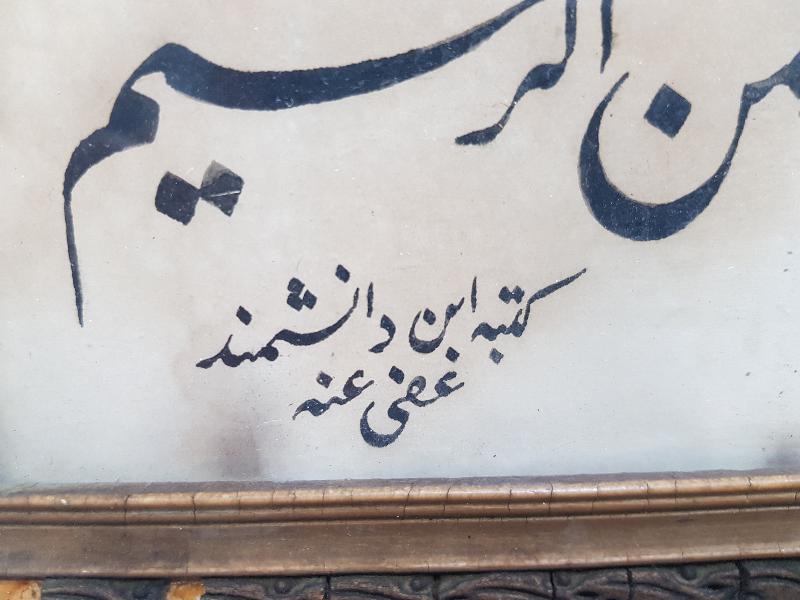 ـمن الرحیم
کتبه ابن دانشمند
عفی عنه